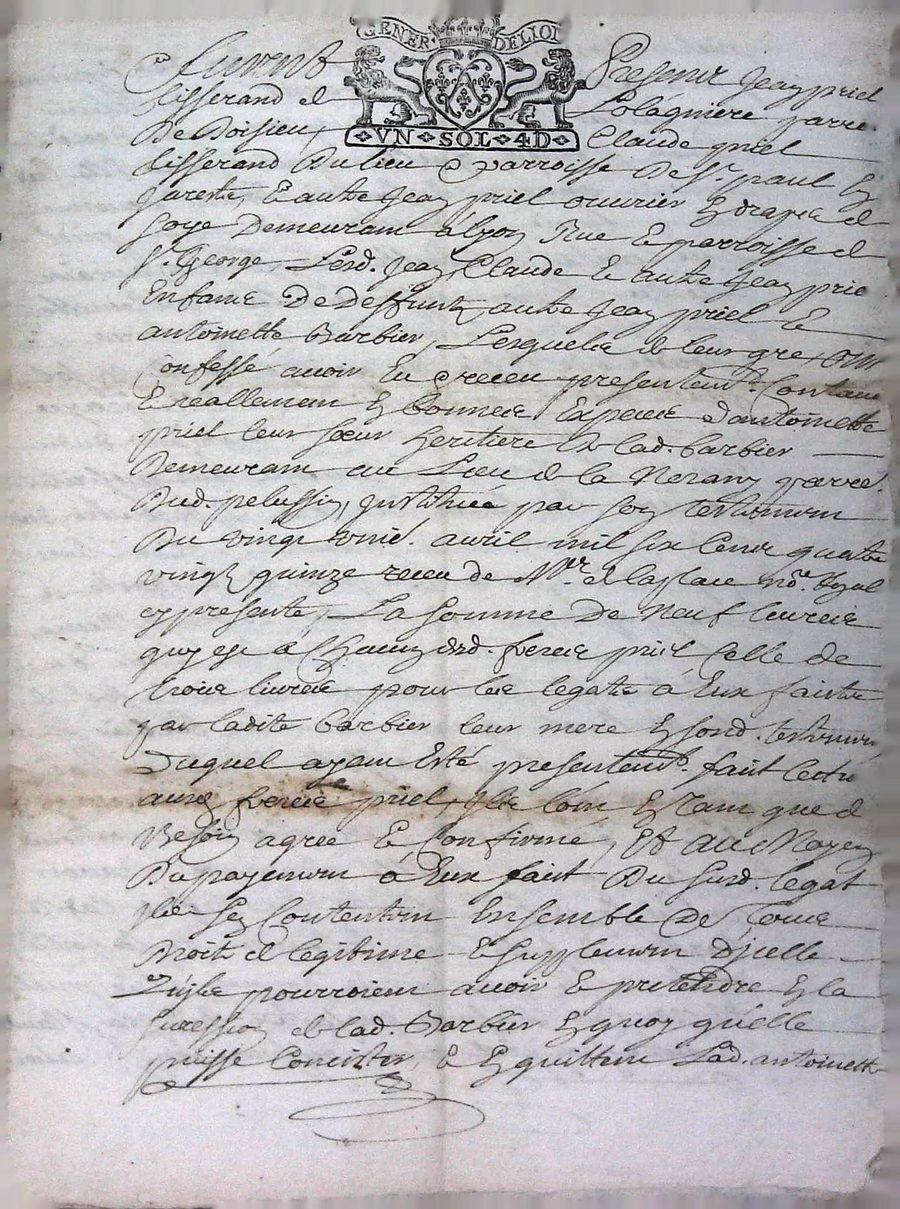 GENER DELION
VN SOL 4D
Furent Presens Jean priel
tisserand de Colagniere parre.
De Doisieu, Claude priel
tisserand Du lieu & parroisse De St. paul En
Jarestz, & autre Jean priel ouvrier En draps de
Soye Demeurant à lyon Rue & parroisse de
St. George, Lesd. Jean, Claude & autre Jean priel
Enfans De Deffunts autre Jean priel &
antoinette Barbier, Lesquels de leur gre ont
Confessé avoir Eu & receu presentemt. Contant
& reallement En bonnes Especes d'antoinette
priel leur sœur heritiere de lad. barbier
Demeurant au Lieu de la Neran parre.
Dud. pelussin, Instituée par son testament
Du vingt uniel. avril mil six Cens quatre
vingts quinze receu de Mr. delasflaces nore. Royal
cy present, La somme De Neuf livres
quy est à Chacun desd. freres priel Celle de
trois livres pour les legats à Eux faits
par ladite barbier leur mere En sond. testament
Duquel ayant Esté presentemt. fait lectre
ausd. freres priel, Ils lont En tant que de
Besoin agréé & Confirmé, Et au Moyen
Du payement à Eux fait Du susd. legat
Ils Sen Contentent Ensemble De Tous
Droits de legitime & supplement D'icelle
Quils pourroient avoir & pretendre En la
succession de lad. Barbier En quoy quelle
puisse Concister, & En quittent Lad. antoinette